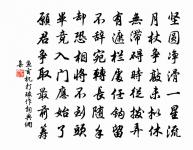 堅圓淨滑一星流
月杖爭敲未擬休
無滯礙時從撥弄
有遮欄處任鉤留
不辭宛轉長隨手
卻恐相將不到頭
畢竟入門應始了
願君爭取最前籌
魚玄机打球作詞典網